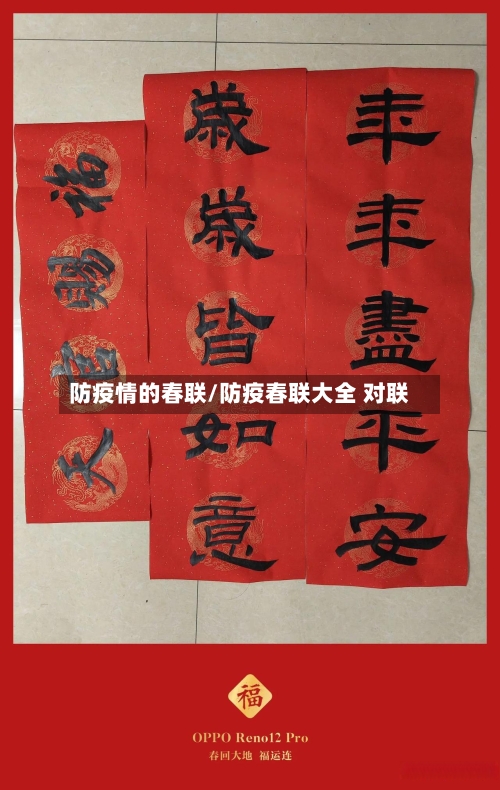 年年盡平安
歲歲皆如意
天官賜福
防疫情的春联/防疫春联大全 对联
福
OPPO Reno12 Pro
春回大地 福运连